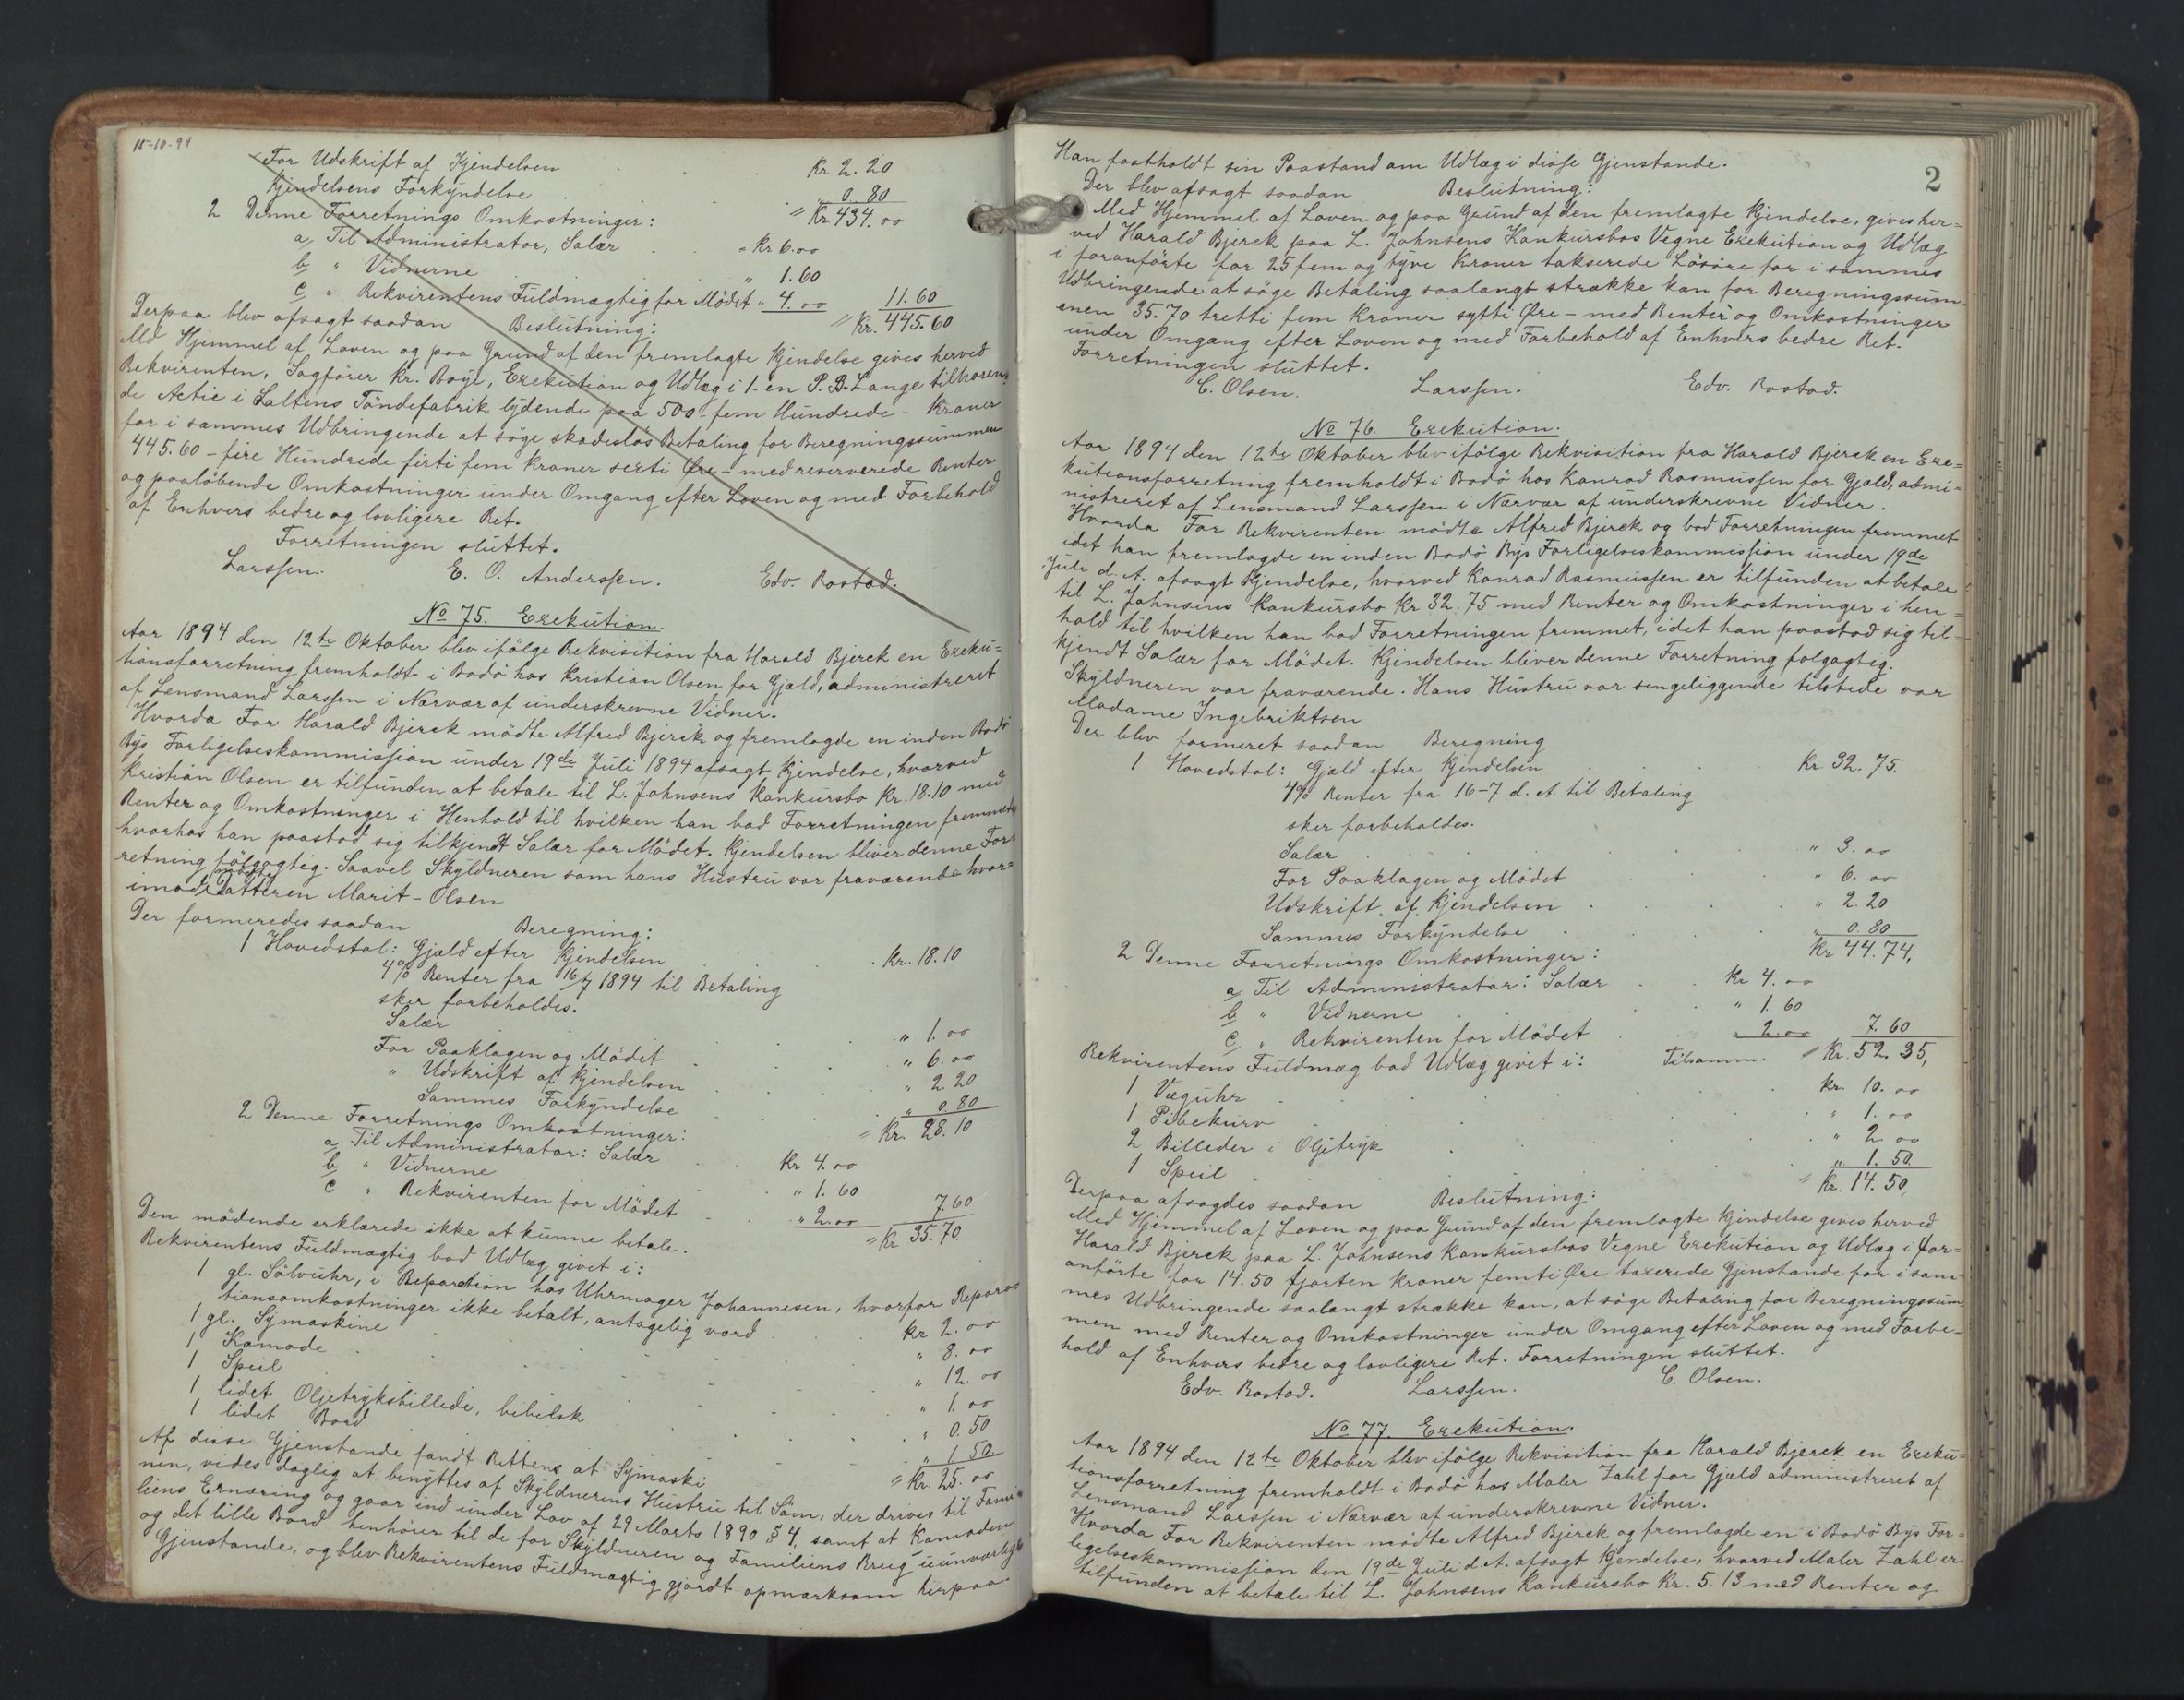 15-10-94
For Udskrift af Kjendelsen Kr 2.20
Kjendelsens Forkyndelse " 0.80
2 Denne Forretnings Omkostninger: = Kr. 434.00
a, Til Administrator, Salær = Kr 6.00
b " Vidnerne " 1.60
c " Rekvirentens Fuldmægtig for Mødet " 4.00 11.60
Derpaa blev afsagt saadan Beslutning: = Kr. 445.60
Md Hjemmel af Loven og paa Grund af den fremlagte Kjendelse gives herved
Rekvirenten, Sagfører Kr. Boye, Exekution og Udlæg i 1-en P. B. Lange tilhøren-
de Actie i Saltens Tøndefabrik lydende paa 500 - fem Hundrede - Kroner
for i sammes Udbringende at søge skadesløs Betaling for Beregningssummen
445.60 - fire Hundrede firti fem Kroner sexti Øre - med reserverede Renter
og paaløbende Omkostninger under Omgang efter Loven og med Forbehold
af Enhvers bedre og lovligere Ret.
Forretningen sluttet.
Larssen. E. O. Anderssen. Edv. Rostad.
No 75. Exekution.
Aar 1894 den 12te Oktober blev ifølge Rekvisition fra Harald Bjerck en Exeku=
tionsforretning fremholdt i Bodø hos Kristian Olsen for Gjæld, administreret
af Lensmand Larssen i Nærvær af underskrevne Vidner.
Hvorda For Harald Bjerck mødte Alfred Bjerck og fremlagde en inden Bodø
Bys Forligelseskommission under 19de Juli 1894 afsagt Kjendelse, hvorved
Kristian Olsen er tilfunden at betale til L. Johnsens Konkursbo Kr. 18.10 med
Renter og Omkostninger i Henhold til hvilken han bad Forretningen fremmet
hvorhos han paastod sig tilkjendt Salær for Mødet. Kjendelsen bliver denne For-
retning følgagtig. Saavel Skyldneren som hans Hustru var fraværende hvor=
imod mødte Datteren Marit - Olsen
Der formeredes saadan Beregning:
1 Hovedstol: Gjæld efter Kjendelsen Kr. 18.10
4% Renter fra 16/7 1894 til Betaling
sker forbeholdes.
Salær " 1.00
For Paaklagen og Mødet " 6.00
" Udskrift af Kjendelsen " 2.20
Sammes Forkyndelse " 0.80
2 Denne Forretnings Omkostninger: = Kr. 28.10
a, Til Administrator: Salær Kr 4.00
b " Vidnerne " 1.60
c " Rekvirenten for Mødet " 2.00 7.60
Den mødende erklærede ikke at kunne betale. = Kr 35.70
Rekvirentens Fuldmægtig bad Udlæg givet i:
1 gl. Sølvuhr, i Reparation hos Uhrmager Johannesen, hvorfor Repara-
tionsomkostninger ikke betalt, antagelig værd Kr 2.00
1 gl. Symaskine " 8.00
1 Komode " 12.00
1 Speil " 1.00
1 lidet Oljetryksbillede, bibelsk " 0.50
1 lidet Bord " 1.50
Af disse Gjenstande fandt Rettens at Symaski = Kr. 25.00
nen, vides daglig at benyttes af Skyldnerens Hustru til Søm, der drives til Fami=
liens Ernæring og gaar ind under Lov af 29 Marts 1890 § 4, samt at Komoden
og det lille Bord henhører til de for Skyldneren og Familiens Brug uundværlige
Gjenstande, og blev Rekvirentens Fuldmægtig gjordt opmærksom herpaa.
2
Han fastholdt sin Paastand om Udlæg i disse Gjenstande.
Der blev afsagt saadan Beslutning:
Med Hjemmel af Loven og paa Grund af den fremlagte Kjendelse, gives her=
ved Harald Bjerck paa L. Johnsens Konkursbos Vegne Exekution og Udlæg
i foranførte for 25 fem og tyve Kroner takserede Løsøre for i sammes
Udbringende at søge Betaling saalangt strække kan for Beregningssum-
enen 35.70 tretti fem Kroner sytti Øre - med Renter og Omkostninger
under Omgang efter Loven og med Forbehold af Enhvers bedre Ret.
Forretningen sluttet.
C. Olsen. Larssen. Edv. Rostad.
No 76. Exekution.
Aar 1894 den 12te Oktober blev ifølge Rekvisition fra Harald Bjerck en Exe=
kutionsforretning fremholdt i Bodø hos Konrad Rasmussen for Gjæld, admi=
nistreret af Lensmand Larssen i Nærvær af underskrevne Vidner.
Hvorda For Rekvirenten mødte Alfred Bjerck og bad Forretningen fremmet
idet han fremlagde en inden Bodø Bys Forligelseskommission under 19de
Juli d. A. afsagt Kjendelse, hvorved Konrad Rasmussen er tilfunden at betale
til L. Johnsens Konkursbo Kr 32.75 med Renter og Omkostninger i hen=
hold til hvilken han bad Forretningen fremmet, idet han paastod sig til=
kjendt Salær for Mødet. Kjendelsen bliver denne Forretning følgagtig.
Skyldneren var fraværende. Hans Hustru var sengeliggende tilstede var
Madame Ingebriktsen
Der blev formeret saadan Beregning
1 Hovedstol: Gjæld efter Kjendelsen Kr. 32.75.
4% Renter fra 16-7 d. A. til Betaling
sker forbeholdes.
Salær " 3.00
For Paaklagen og Mødet " 6.00
Udskrift af Kjendelsen " 2.20
Sammes Forkyndelse " 0.80
2 Denne Forretnings Omkostninger: Kr 44.74,
a, Til Administrator: Salær Kr 4.00
b " Vidnerne " 1.60
c " Rekvirenten for Mødet " 2.00 7.60
Rekvirentens Fuldmæg bad Udlæg givet i: Tilsamm. = Kr. 52.35,
1 Væguhr Kr. 10.00
1 Pibekurv " 1.00
2 Billeder i Oljetryk " 2.00
1 Speil " 1.50
= Kr. 14.50
Derpaa afsagdes saadan Beslutning:
Med Hjemmel af Loven og paa Grund af den fremlagte Kjendelse gives herved
Harald Bjerck paa L. Johnsens Konkursbos Vegne Exekution og Udlæg i for=
anførte for 14.50 fjorten Kroner femti Øre taxerede Gjenstande for i sam-
mes Udbringende saalangt strække kan, at søge Betaling for Beregningssum
men med Renter og Omkostninger under Omgang efter Loven og med Forbe-
hold af Enhvers bedre og lovligere Ret. Forretningen sluttet.
Edv. Rostad. Larssen. C. Olsen.
No 77. Exekution.
Aar 1894 den 12te Oktober blev ifølge Rekvisition fra Harald Bjerck en Exeku=
tionsforretning fremholdt i Bodø hos Maler Zahl for Gjæld administreret af
Lensmand Larssen i Nærvær af underskrevne Vidner.
Hvorda For Rekvirenten mødte Alfred Bjerck og fremlagde en i Bodø Bys For=
ligelseskommission den 19de Juli d. A. afsagt Kjendelse, hvorved Maler Zahl er
tilfunden at betale til L. Johnsens Konkursbo Kr. 5.13 med Renter og